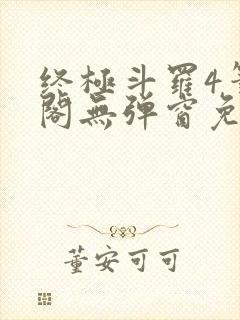 终極斗羅4
閣無弹窗免
董安可可